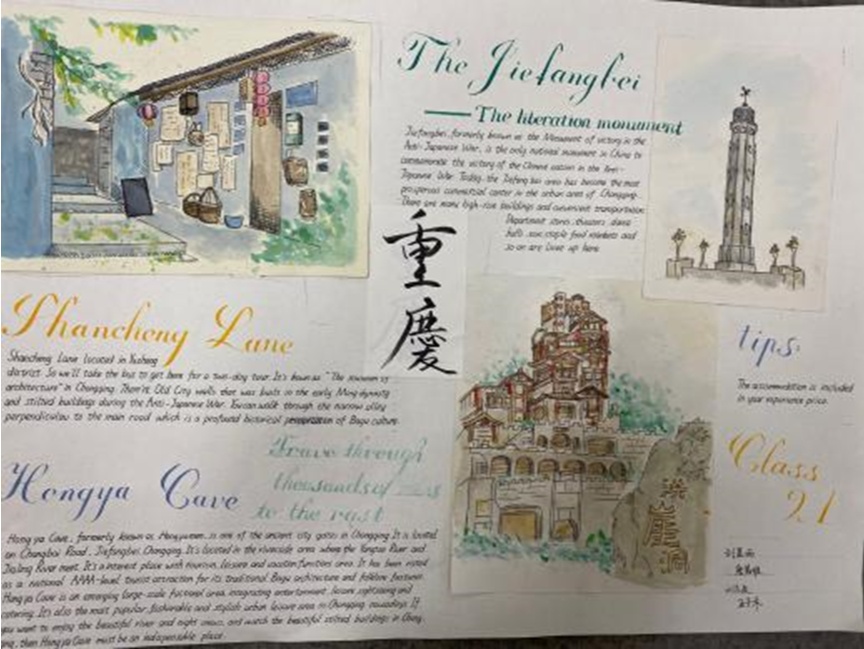 The Jiefangbei
The liberation monument
Jiefangbei, formerly known as the Monument of victory in the
Anti-Japanese War, is the only national monument in China to
commemorate the victory of the Chinese nation in the Anti-
Japanese War. Today, the Jiefang bei area has become the most
prosperous commercial center in the urban area of Chongqing.
There are many high-rise buildings and convenient transportation
Department stores, theaters, dance
halls, food markets and
so on are lined up here
重慶
Shancheng Lane
Shancheng Lane located in Yuzhong
district. So we'll take the bus to get here for a two-day tour. It's known as "The museum of
architecture" in Chongqing. There're Old City walls that was built in the early Ming dynasty
and stilted buildings during the Anti-Japanese War. You can walk through the narrow alley
perpendicular to the main road which is a profound historical of Bayu culture.
through
thousands of
to the
Hongya Cave
Hong ya Cave, formerly known as is one of the ancient city gates in Chongqing. It is located
on Road, Jiefangbei, Chongqing. It's located in the riverside area where the Yangtze River and
Jialing River meet. It's a interest place with tourism, leisure and vacation functions area. It has been rated
as a national AAAA-level tourist attraction for its traditional Bayu architecture and folklore features.
Hong ya Cave is an emerging large-scale area, integrating entertainment, leisure, sightseeing and
catering. It's also the most popular, fashionable and stylish urban leisure area in Chongqing nowadays. If
you want to enjoy the beautiful river and night views, and watch the beautiful stilted buildings in Chong
qing, then Hong ya Cave must be an indispensable place.
洪崖洞
tips:
The accommodation is included
in your experience price.
Class
9.1